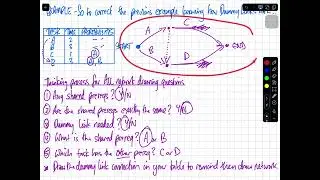 EXAMPLE - So to correct the previous example knowing how Dummy Links
TASK TIME PREREQ
A 2 -
B 3 -
C A
D
START
A
B
C
D
END
Thinking process for ALL network drawing questions
① Any shared prereqs? Y/N
② Are the shared prereqs exactly the same? Y/N
③ Dummy Link needed? Y/N
④ What is the shared prereq? A or B
⑤ Which task has the other prereq? C or D
* Draw the dummy link connection in your table to remind them draw network